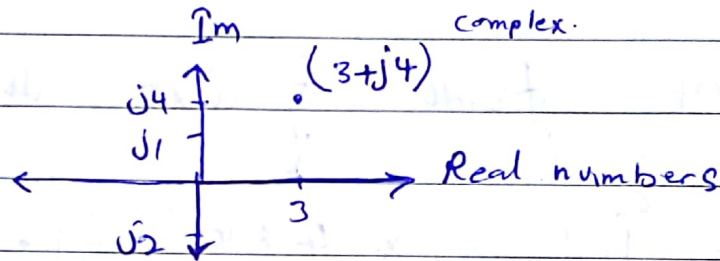 Im
complex.
(3+j4)
j4
j1
Real numbers
3
j2